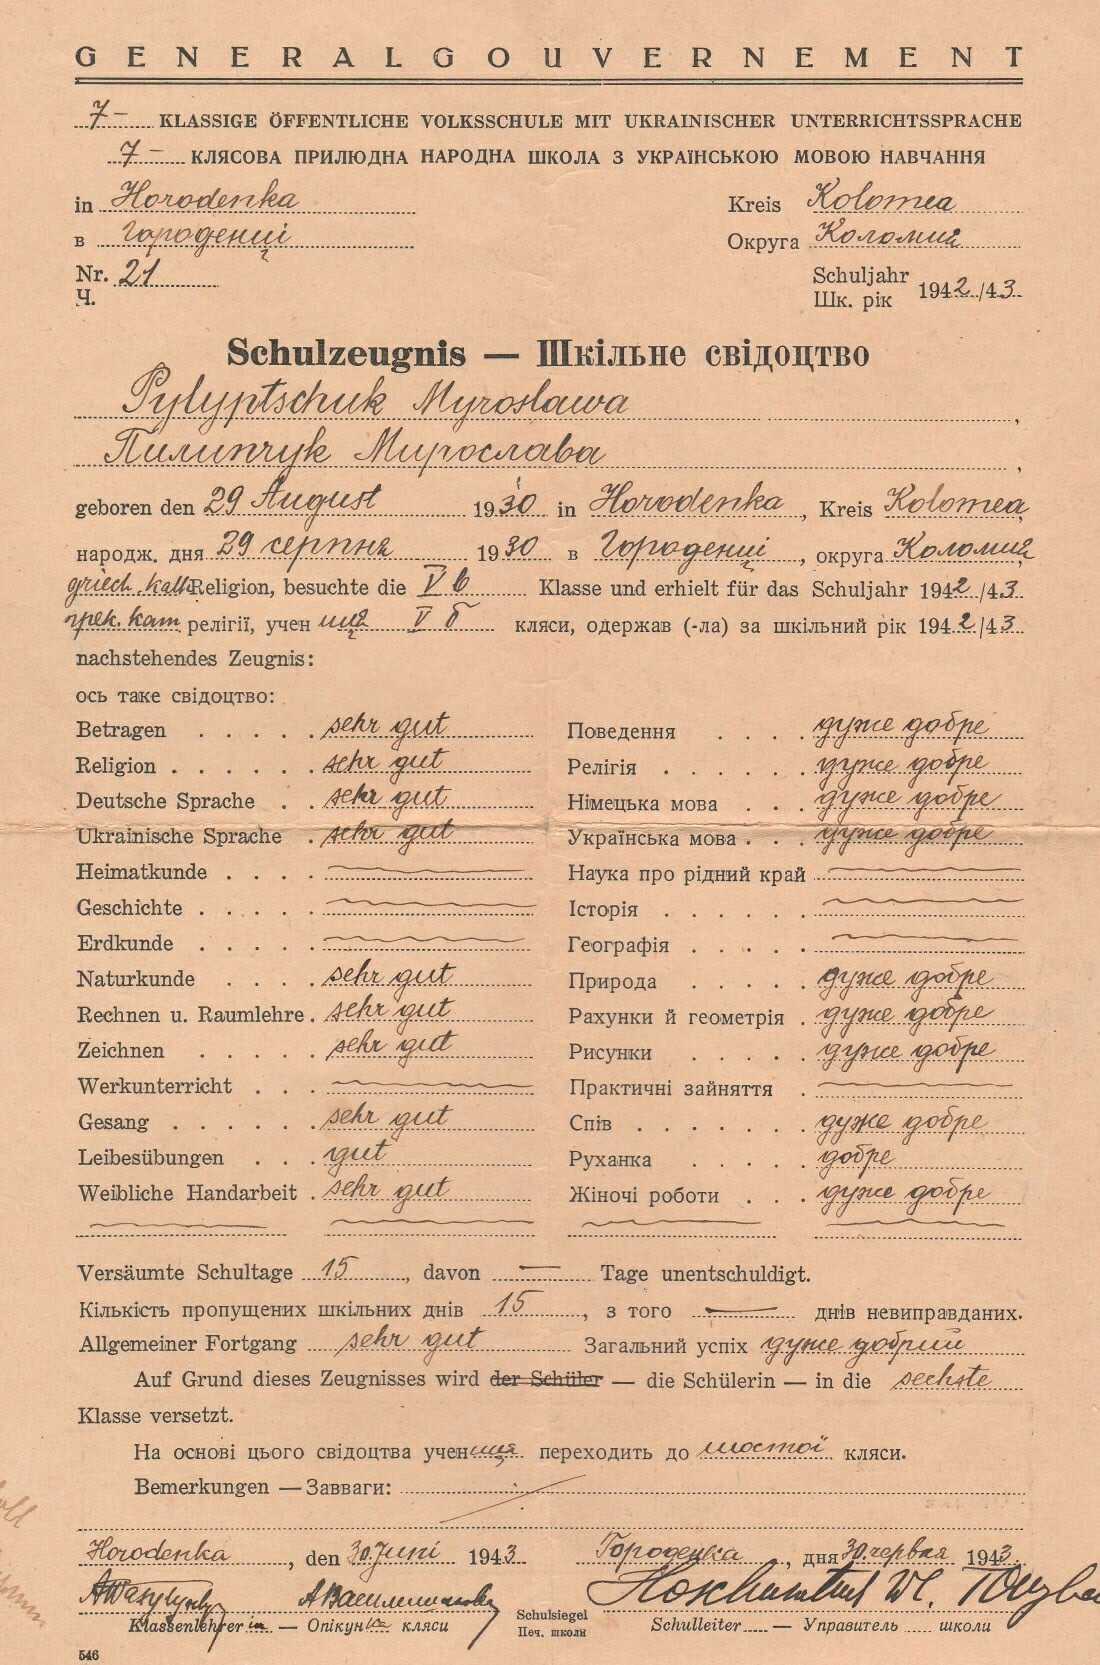 GENERALGOUVERNEMENT
7- KLASSIGE ÖFFENTLICHE VOLKSSCHULE MIT UKRAINISCHER UNTERRICHTSSPRACHE
7- КЛЯСОВА ПРИЛЮДНА НАРОДНА ШКОЛА З УКРАЇНСЬКОЮ МОВОЮ НАВЧАННЯ
in Horodenka Kreis Kolomea
в Городенці Округа Коломия
Nr. 21 Schuljahr 1942/43
Ч. Шк. рік
Schulzeugnis — Шкільне свідоцтво
Pylyptschuk Myroslawa,
Пилипчук Мирослава,
geboren den 29 August 1930 in Horodenka, Kreis Kolomea,
народж. дня 29 серпня 1930 в Городенці, округа Коломия,
griech. kath. Religion, besuchte die V b Klasse und erhielt für das Schuljahr 1942/43
грек. кат. релігії, учениця V б кляси, одержав (-ла) за шкільний рік 1942/43
nachstehendes Zeugnis:
ось таке свідоцтво:
Betragen . . . . . sehr gut Поведення . . . . дуже добре
Religion . . . . . . sehr gut Релігія . . . . . . дуже добре
Deutsche Sprache . . sehr gut Німецька мова . . . дуже добре
Ukrainische Sprache . sehr gut Українська мова . . . дуже добре
Heimatkunde . . . . Наука про рідний край
Geschichte . . . . . Історія . . . . . .
Erdkunde . . . . . Географія . . . . .
Naturkunde . . . . sehr gut Природа . . . . . дуже добре
Rechnen u. Raumlehre . sehr gut Рахунки й геометрія . дуже добре
Zeichnen . . . . . sehr gut Рисунки . . . . . дуже добре
Werkunterricht . . . Практичні зайняття .
Gesang . . . . . . sehr gut Спів . . . . . . . дуже добре
Leibesübungen . . . gut Руханка . . . . . добре
Weibliche Handarbeit . sehr gut Жіночі роботи . . . дуже добре
Versäumte Schultage 15, davon — Tage unentschuldigt.
Кількість пропущених шкільних днів 15, з того — днів невиправданих.
Allgemeiner Fortgang sehr gut Загальний успіх дуже добрий
Auf Grund dieses Zeugnisses wird der Schüler — die Schülerin — in die sechste
Klasse versetzt.
На основі цього свідоцтва учениця переходить до шостої кляси.
Bemerkungen — Завваги:
Horodenka, den 30. Juni 1943 Городенка, дня 30. червня 1943.
Klassenlehrerin — Опікунка кляси Schulsiegel Schulleiter — Управитель школи
Печ. школи
546